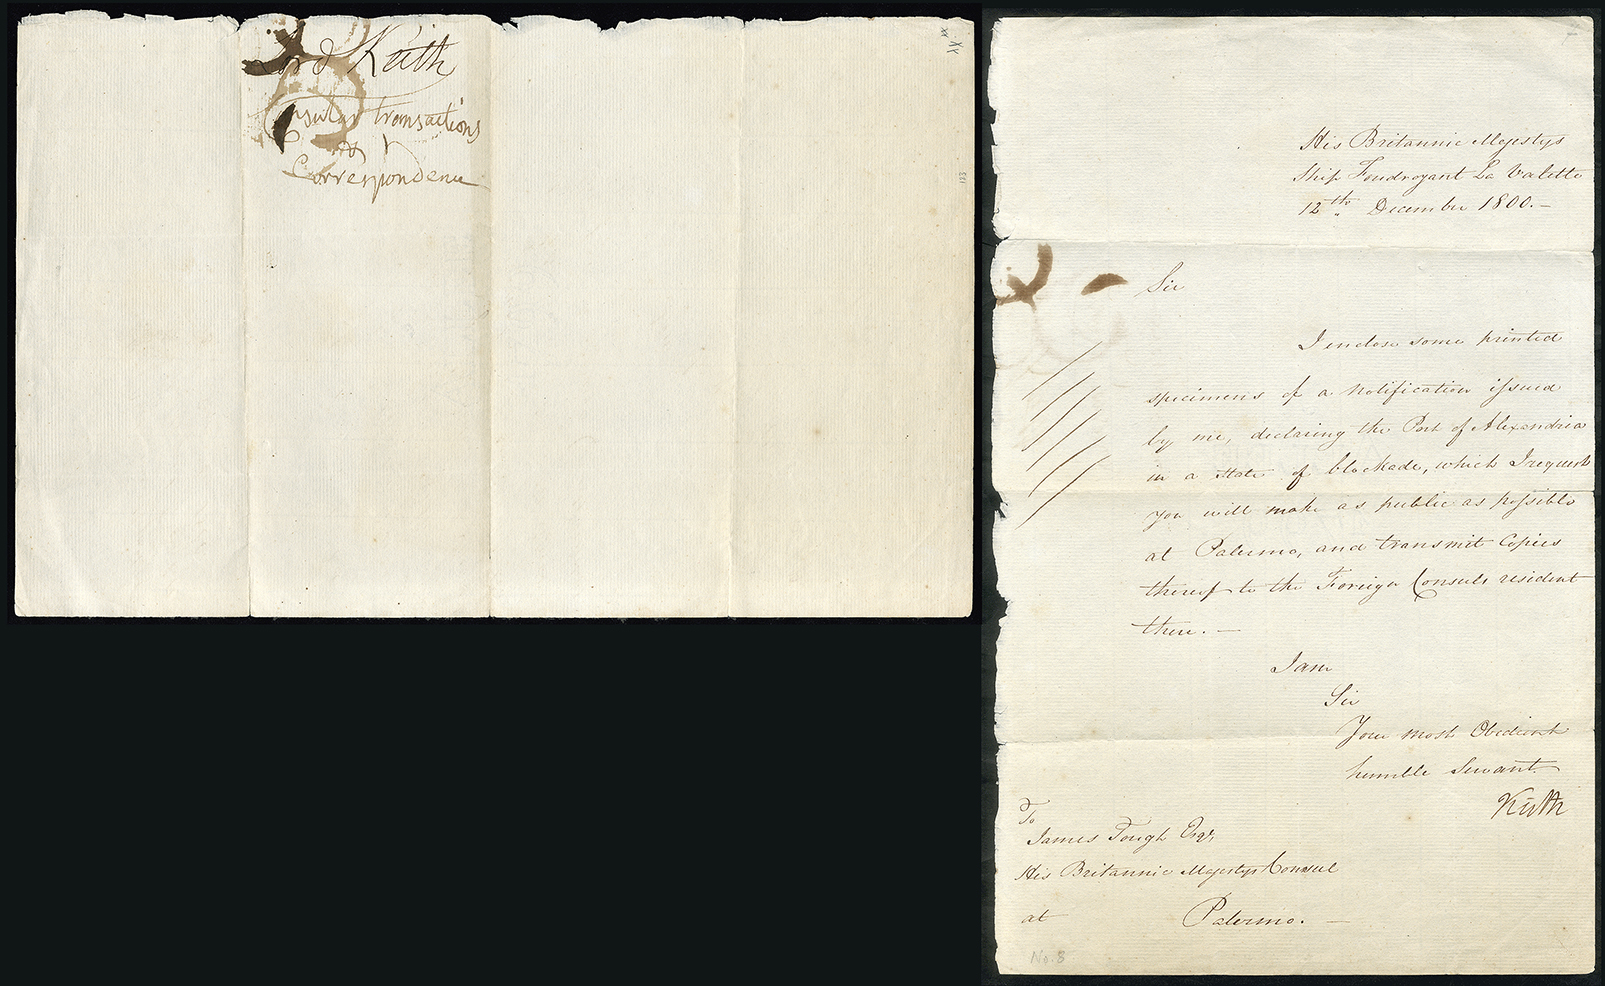 Lord Keith
Consular transactions
&
Correspondence
xx
XX
123
His Britannic Majestys
Ship Foudroyant La Valette
12th December 1800.—
Sir
I enclose some printed
specimens of a Notification issued
by me, declaring the Port of Alexandria
in a State of blockade, which I request
you will make as public as possible
at Palermo, and transmit Copies
thereof to the Foreign Consuls resident
there. —
I am
Sir
Your most Obedient
humble Servant.
Keith
To
James Tough Esqr,
His Britannic Majestys Consul
at Palermo. —
No. 8